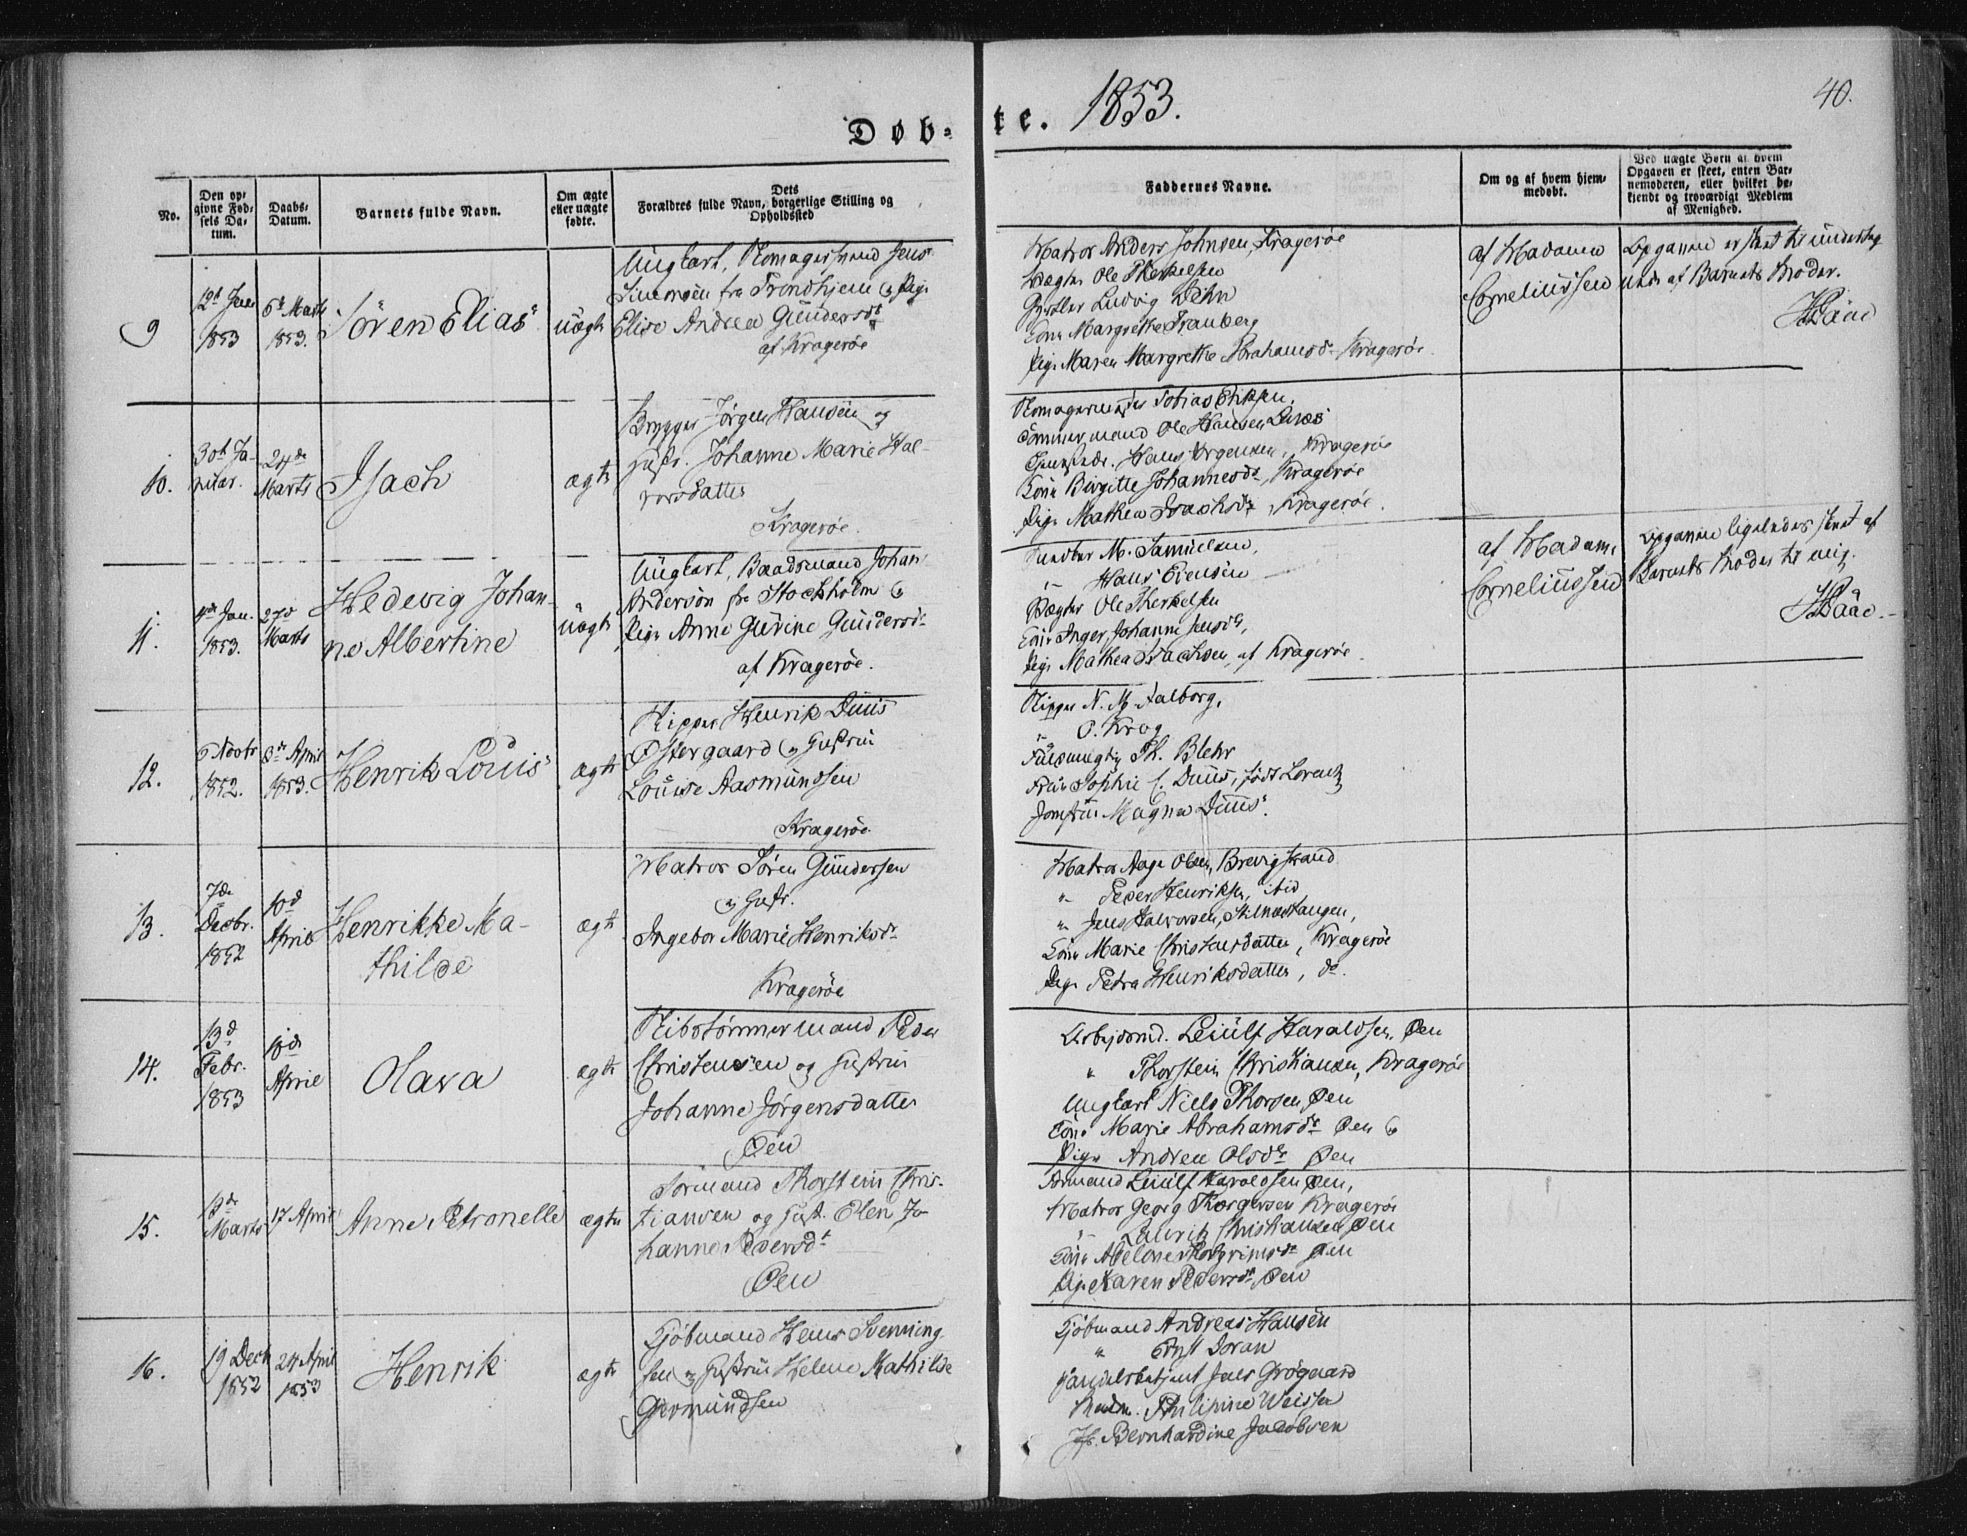 Døb-te. 1853.
40.
No.
Den op-
givne Fød-
sels Da-
tum.
Daabs-
Datum.
Barnets fulde Navn.
Om ægte
eller uægte
fødte.
Dets
Forældres fulde Navn, borgerlige Stilling og
Opholdssted
Faddernes Navne.
Om og af hvem hjem-
medøbt.
Ved uægte Børn af hvem
Opgaven er skeet, enten Bar-
nemoderen, eller hvilket be-
kjendt og troværdigt Medlem
af Menighed.
9
12t Jan
1853
6te Marts
1853.
Sören Elias
uægte
Ungkarl, Jens
Simonsen fra Trondhjem og Pige
Elise Andrea Gundersdt
af Kragerøe
Matros Anders Johnsen, Kragerøe
Vægter Ole Therkelsen
Ludvig Dehn
Kone Margrethe Tranberg
Pige Maren Margrethe Abrahamsd Kragerøe.
af Madame
Corneliussen
Opgaven er skeet til
af Barnets Moder.
10.
30t Ja-
nuar.
24de
Marts
Isach
ægte
Brygger Jørgen Hansen og
Hustr. Johanne Marie Hal-
vorsdatter
Kragerøe.
Tobias Eriksen,
Tømmermand Ole Hansen
Hans Jørgensen, Kragerøe
Kone Birgitte Johannesdt, Kragerøe
Pige Mathea Isachsdr, Kragerøe.
11.
4de Jan.
1853.
27d
Marts
Hedevig Johan-
ne Albertine
uægte
Ungkarl, Baadsmand Johan
Anderson fra Stockholm &
Pige Anne Gurine Gundersd
af Kragerøe.
M. Samuelsen,
" Hans Evensen
Vægter Ole Therkelsen
Kone Inger Johanne Jensdt,
Pige Mathea Isachsen, af Kragerøe.
af Madam
Corneliussen
Opgaven ligeledes skeet af
Barnets Moder til mig.
12.
6 Novbr
1852.
8de April
1853.
Henrik Louis
ægte
Skipper Henrik Duus
Østergaard og Hustru
Louise Aasmundsen
Kragerøe
Skipper N. M. Aalborg,
" O. Krog
Fuldmægtig Th. Blehr
Frue Sophie C. Duus, født Lorentz
Jomfru Magna Duus.
13.
7de
Decbr.
1852
10d
April
Henrikke Ma-
thilde
ægte
Matros Søren Gundersen
og Hustr.
Ingebor Marie Henriksdr
Kragerøe
Matros Aage Olsen, Brevigstrand
" Peder Henriksen, ibid
" Jens Halvorsen,
Kone Marie Christensdatter, Kragerøe
Pige Petra Henriksdatter, do.
14.
13d
Febr.
1853
10de
April
Olava
ægte
Skibstømmermand Peder
Christensen og Hustru
Johanne Jørgensdatter
Øen
Arbejdsmd. Leiulf Haraldsen, Øen
" Thorstein Christiansen, Kragerøe
Ungkarl Niels Thorsen, Øen
Kone Marie Abrahamsdr Øen &
Pige Andrea Olsdr Øen
15.
13de
Marts
17 April
Anne Petronelle
ægte
Sømand Thorstein Chris-
tiansen og Hust. Elen Jo-
hanne Pedersdt
Øen
Leiulf Haraldsen Øen,
Matros Georg Thorgersen Kragerøe
" Lauritz Christiansen Øen
Kone Abelone Øen
Pige Karen Pedersdr, Øen
16.
19 Decbr
1852
24 April
1853
Henrik
ægte
Kjøbmand Hans Svenning-
sen og Hustru Helene Mathilde
Germundsen
Kjøbmand Andreas Hansen
" Ernst Doran
Handelsbetjent Jens Grøgaard
Madm. Philipine Weisser
Jfr. Bernhardine Jacobsen